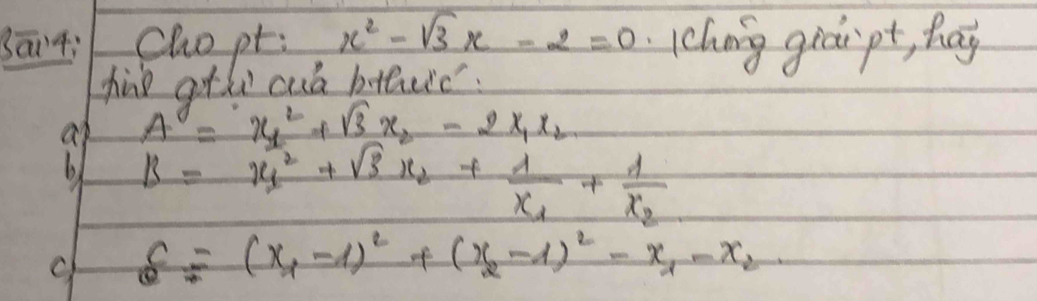 Bài 4: Cho pt: x² - √3x - 2 = 0. Không giải pt, hãy
tính gtrị của bthức:
a) A = x₁² + √3x₂ - 2x₁x₂.
b) B = x₁² + √3x₂ + 1/x₁ + 1/x₂
c) C = (x₁ - 1)² + (x₂ - 1)² - x₁ - x₂.